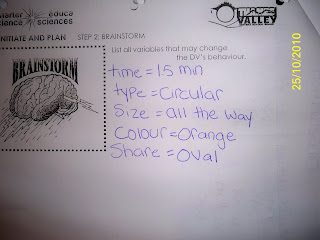 smarter educa
science sciences
VALLEY
INITIATE AND PLAN STEP 2: BRAINSTORM
List all variables that may change
the DV's behaviour.
BRAINSTORM
time = 15 min
type = Circular
Size = all the way
Colour = Orange
Share = Oval
25/10/2010